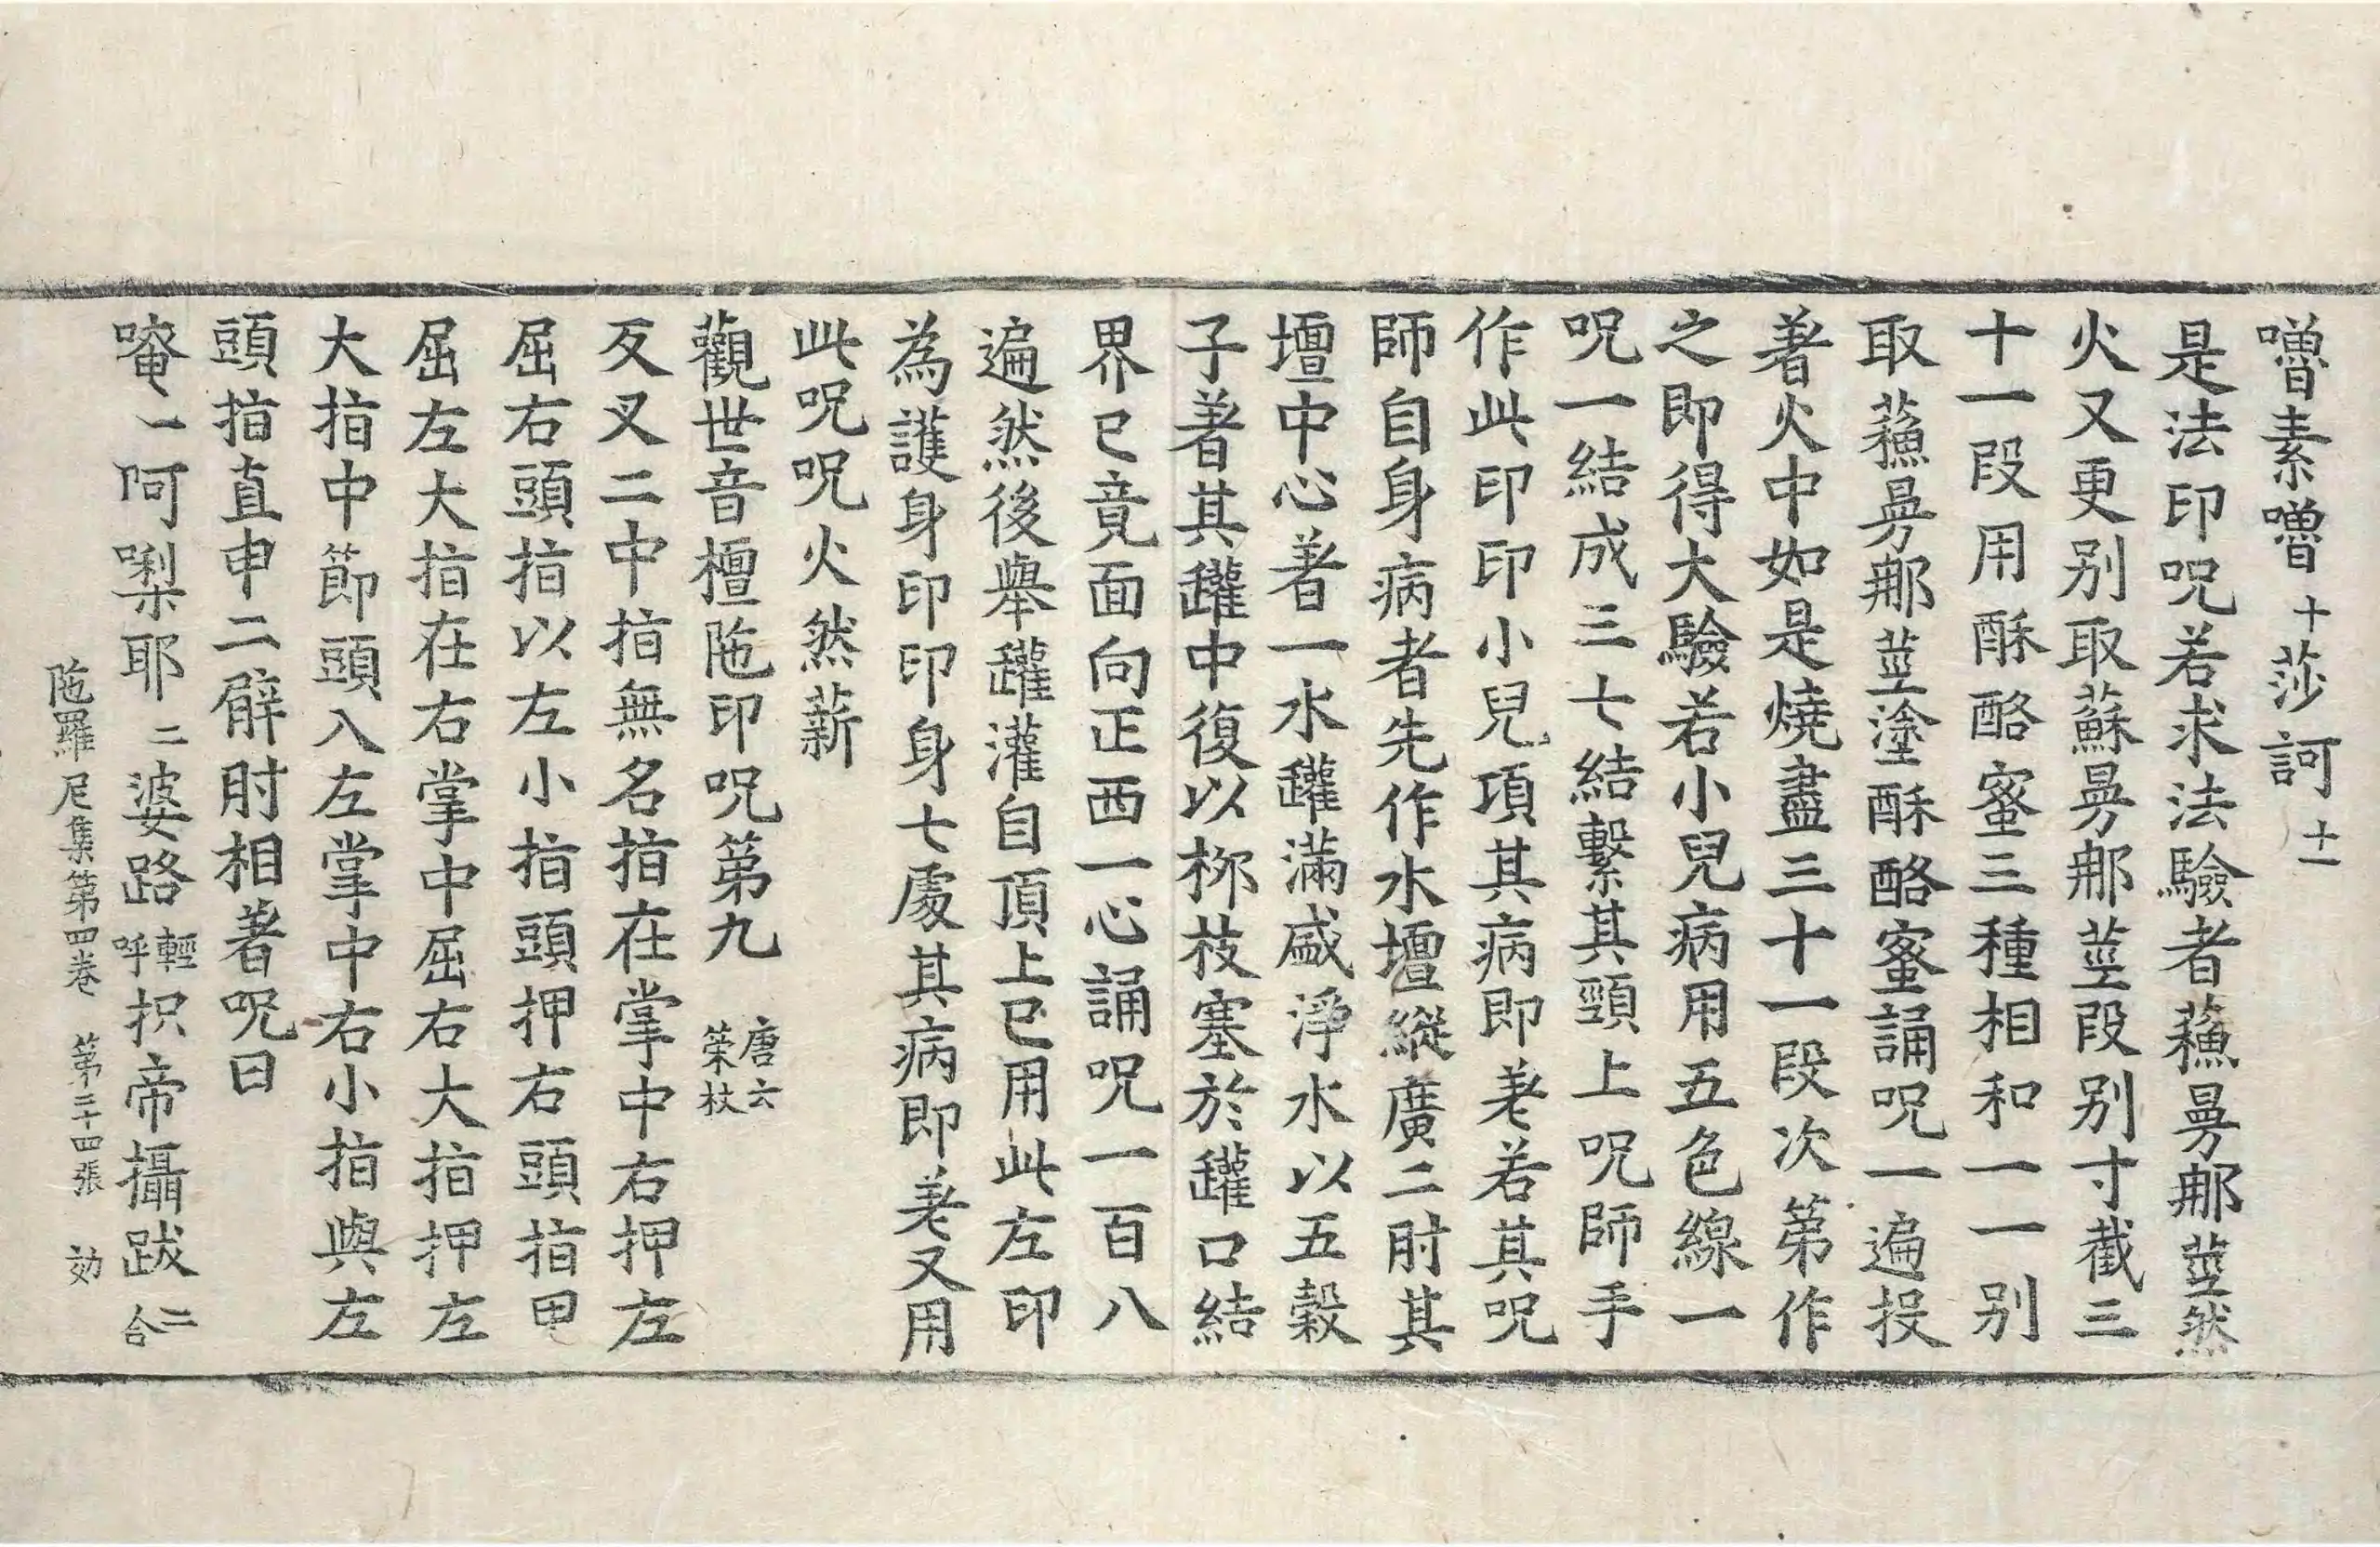 嚕素嚕十莎訶十一
是法印呪若求法驗者蘓㫱那莖然
火又更別取蘇㫱那莖段別寸截三
十一段用酥酪蜜三種相和一一別
取蘓㫱那莖塗酥酪蜜誦呪一遍投
著火中如是燒盡三十一段次第作
之即得大驗若小兒病用五色線一
呪一結成三七結繫其頸上呪師手
作此印印小兒項其病即差若其呪
師自身病者先作水壇縱廣二肘其
壇中心著一水罐滿盛淨水以五穀
子著其罐中復以栁枝塞於罐口結
界已竟面向正西一心誦呪一百八
遍然後舉罐灌自頂上已用此左印
為護身印印身七處其病即差又用
此呪呪火然薪
觀世音檀陁印呪第九唐云棨杖
反叉二中指無名指在掌中右押左
屈右頭指以左小指頭押右頭指甲
屈左大指在右掌中屈右大指押左
大指中節頭入左掌中右小指與左
頭指直申二臂肘相著呪曰
唵一阿㗚耶二婆路輕呼枳帝攝跋二合
陁羅尼集第四卷　第三十四張　効